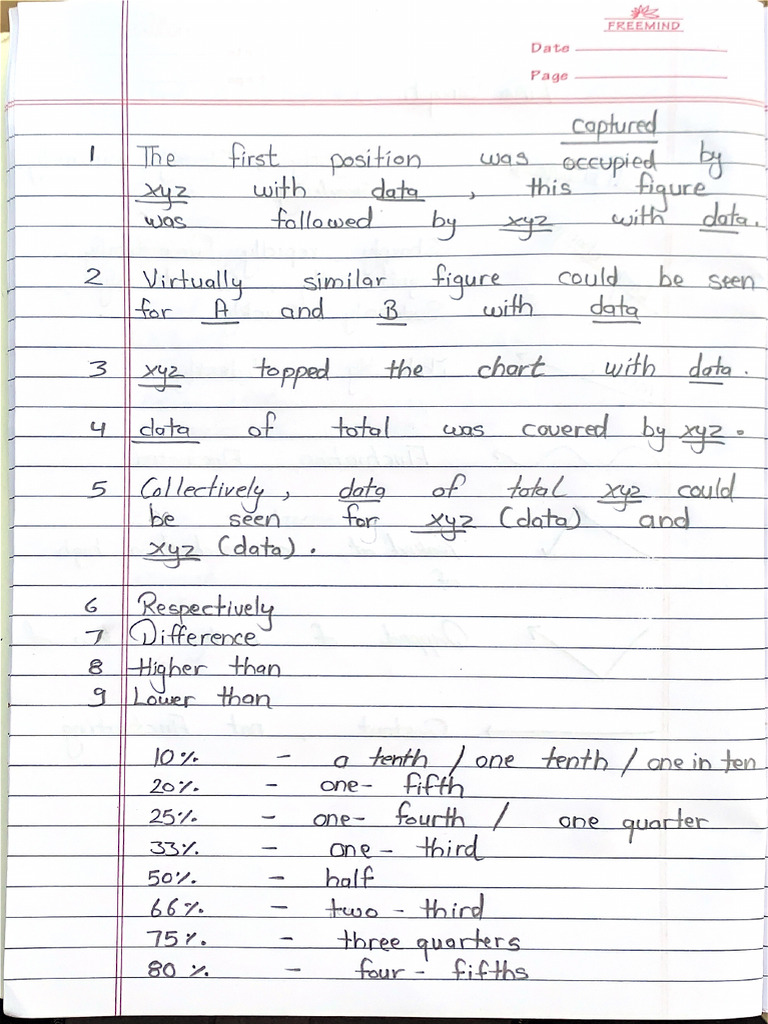 FREEMIND
Date
Page
captured
1 The first position was occupied by
xyz with data , this figure
was followed by xyz with data.
2 Virtually similar figure could be seen
for A and B with data
3 xyz topped the chart with data .
4 data of total was covered by xyz .
5 Collectively , data of total xyz could
be seen for xyz (data) and
xyz (data) .
6 Respectively
7 Difference
8 Higher than
9 Lower than
10% - a tenth / one tenth / one in ten
20% - one- fifth
25% - one- fourth / one quarter
33% - one - third
50% - half
66% - two - third
75% - three quarters
80 % - four - fifths